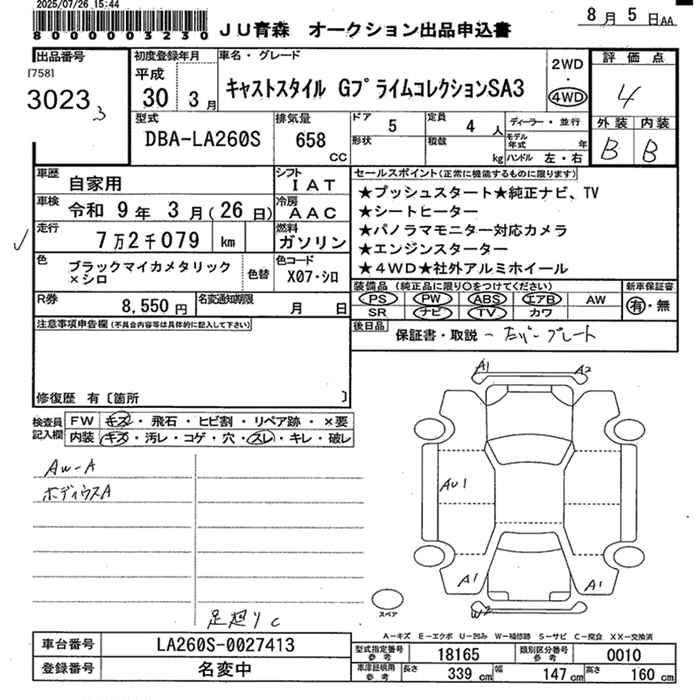 2025/07/26 15:44
8 0 0 0 0 0 3 2 3 0
JU青森 オークション出品申込書
8月5日AA
出品番号
[758]
3023
3
初度登録年月
平成
30 3月
車名・グレード
キャストスタイル Gプライムコレクション SA3
2WD
・
4WD
評価点
4
外装 内装
B B
型式
DBA-LA260S
排気量
658
CC
ドア
5
形状
定員
4 人
積数
kg
ディーラー・並行
モデル年式 年
ハンドル 左・右
車歴
自家用
シフト
IAT
車検
令和 9年 3月(26日)
冷房
AAC
走行
7万2千079 km
燃料
ガソリン
色
ブラックマイカメタリック
×シロ
色替
色コード
X07・シロ
セールスポイント(正常に機能するものに限ります)
★プッシュスタート★純正ナビ、TV
★シートヒーター
★パノラマモニター対応カメラ
★エンジンスターター
★4WD★社外アルミホイール
装備品 (純正品に限り〇をつけてください)
新車保証書
PS PW ABS エアB AW
SR ナビ TV カワ
有・無
R券
8,550円
名変通知期限
月 日
後日品
保証書・取説
注意事項申告欄(不具合内容等は具体的に記入して下さい)
修復歴 有〔箇所 〕
検査員
記入欄
FW キズ・飛石・ヒビ割・リペア跡・×要
内装 キズ・汚レ・コゲ・穴・スレ・キレ・破レ
AW-A
ボディウスA
足廻りC
A1 A2
AU1
A1 A1
W2
スペア
A-キズ E-エクボ U-凹み W-補修跡 S-サビ C-腐食 XX-交換済
車台番号
LA260S-0027413
登録番号
名変中
型式指定番号
参考
18165
類別区分番号
参考
0010
車庫証明用
参考
長さ 339cm 幅 147cm 高さ 160cm